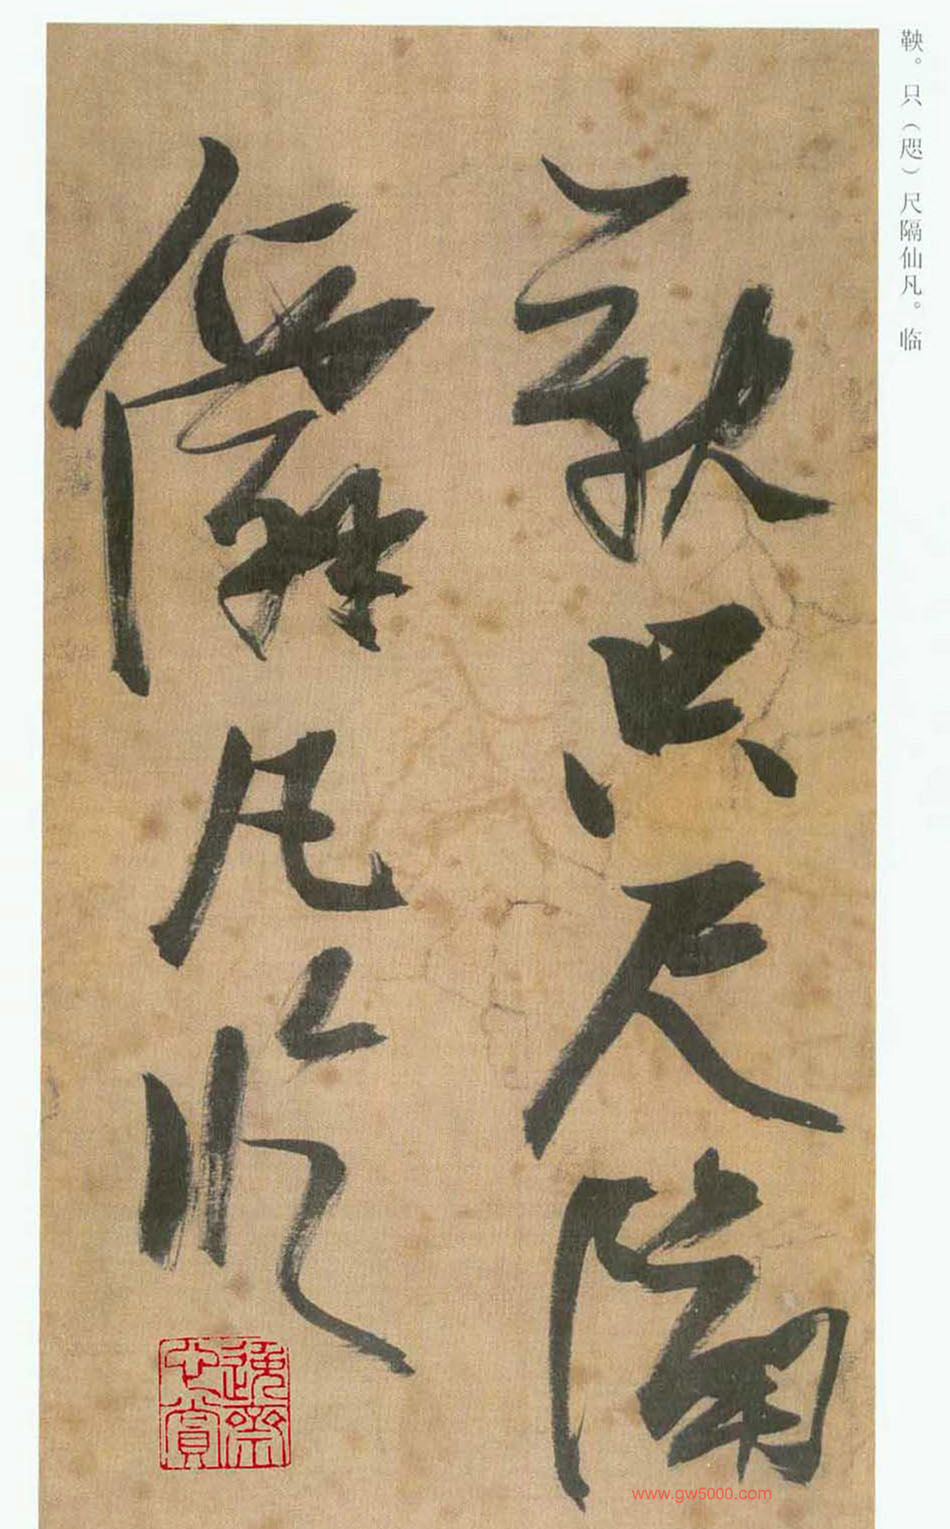 鞅。只（咫）尺隔仙凡。临
鞅只尺隔
僊凡臨
www.gw5000.com